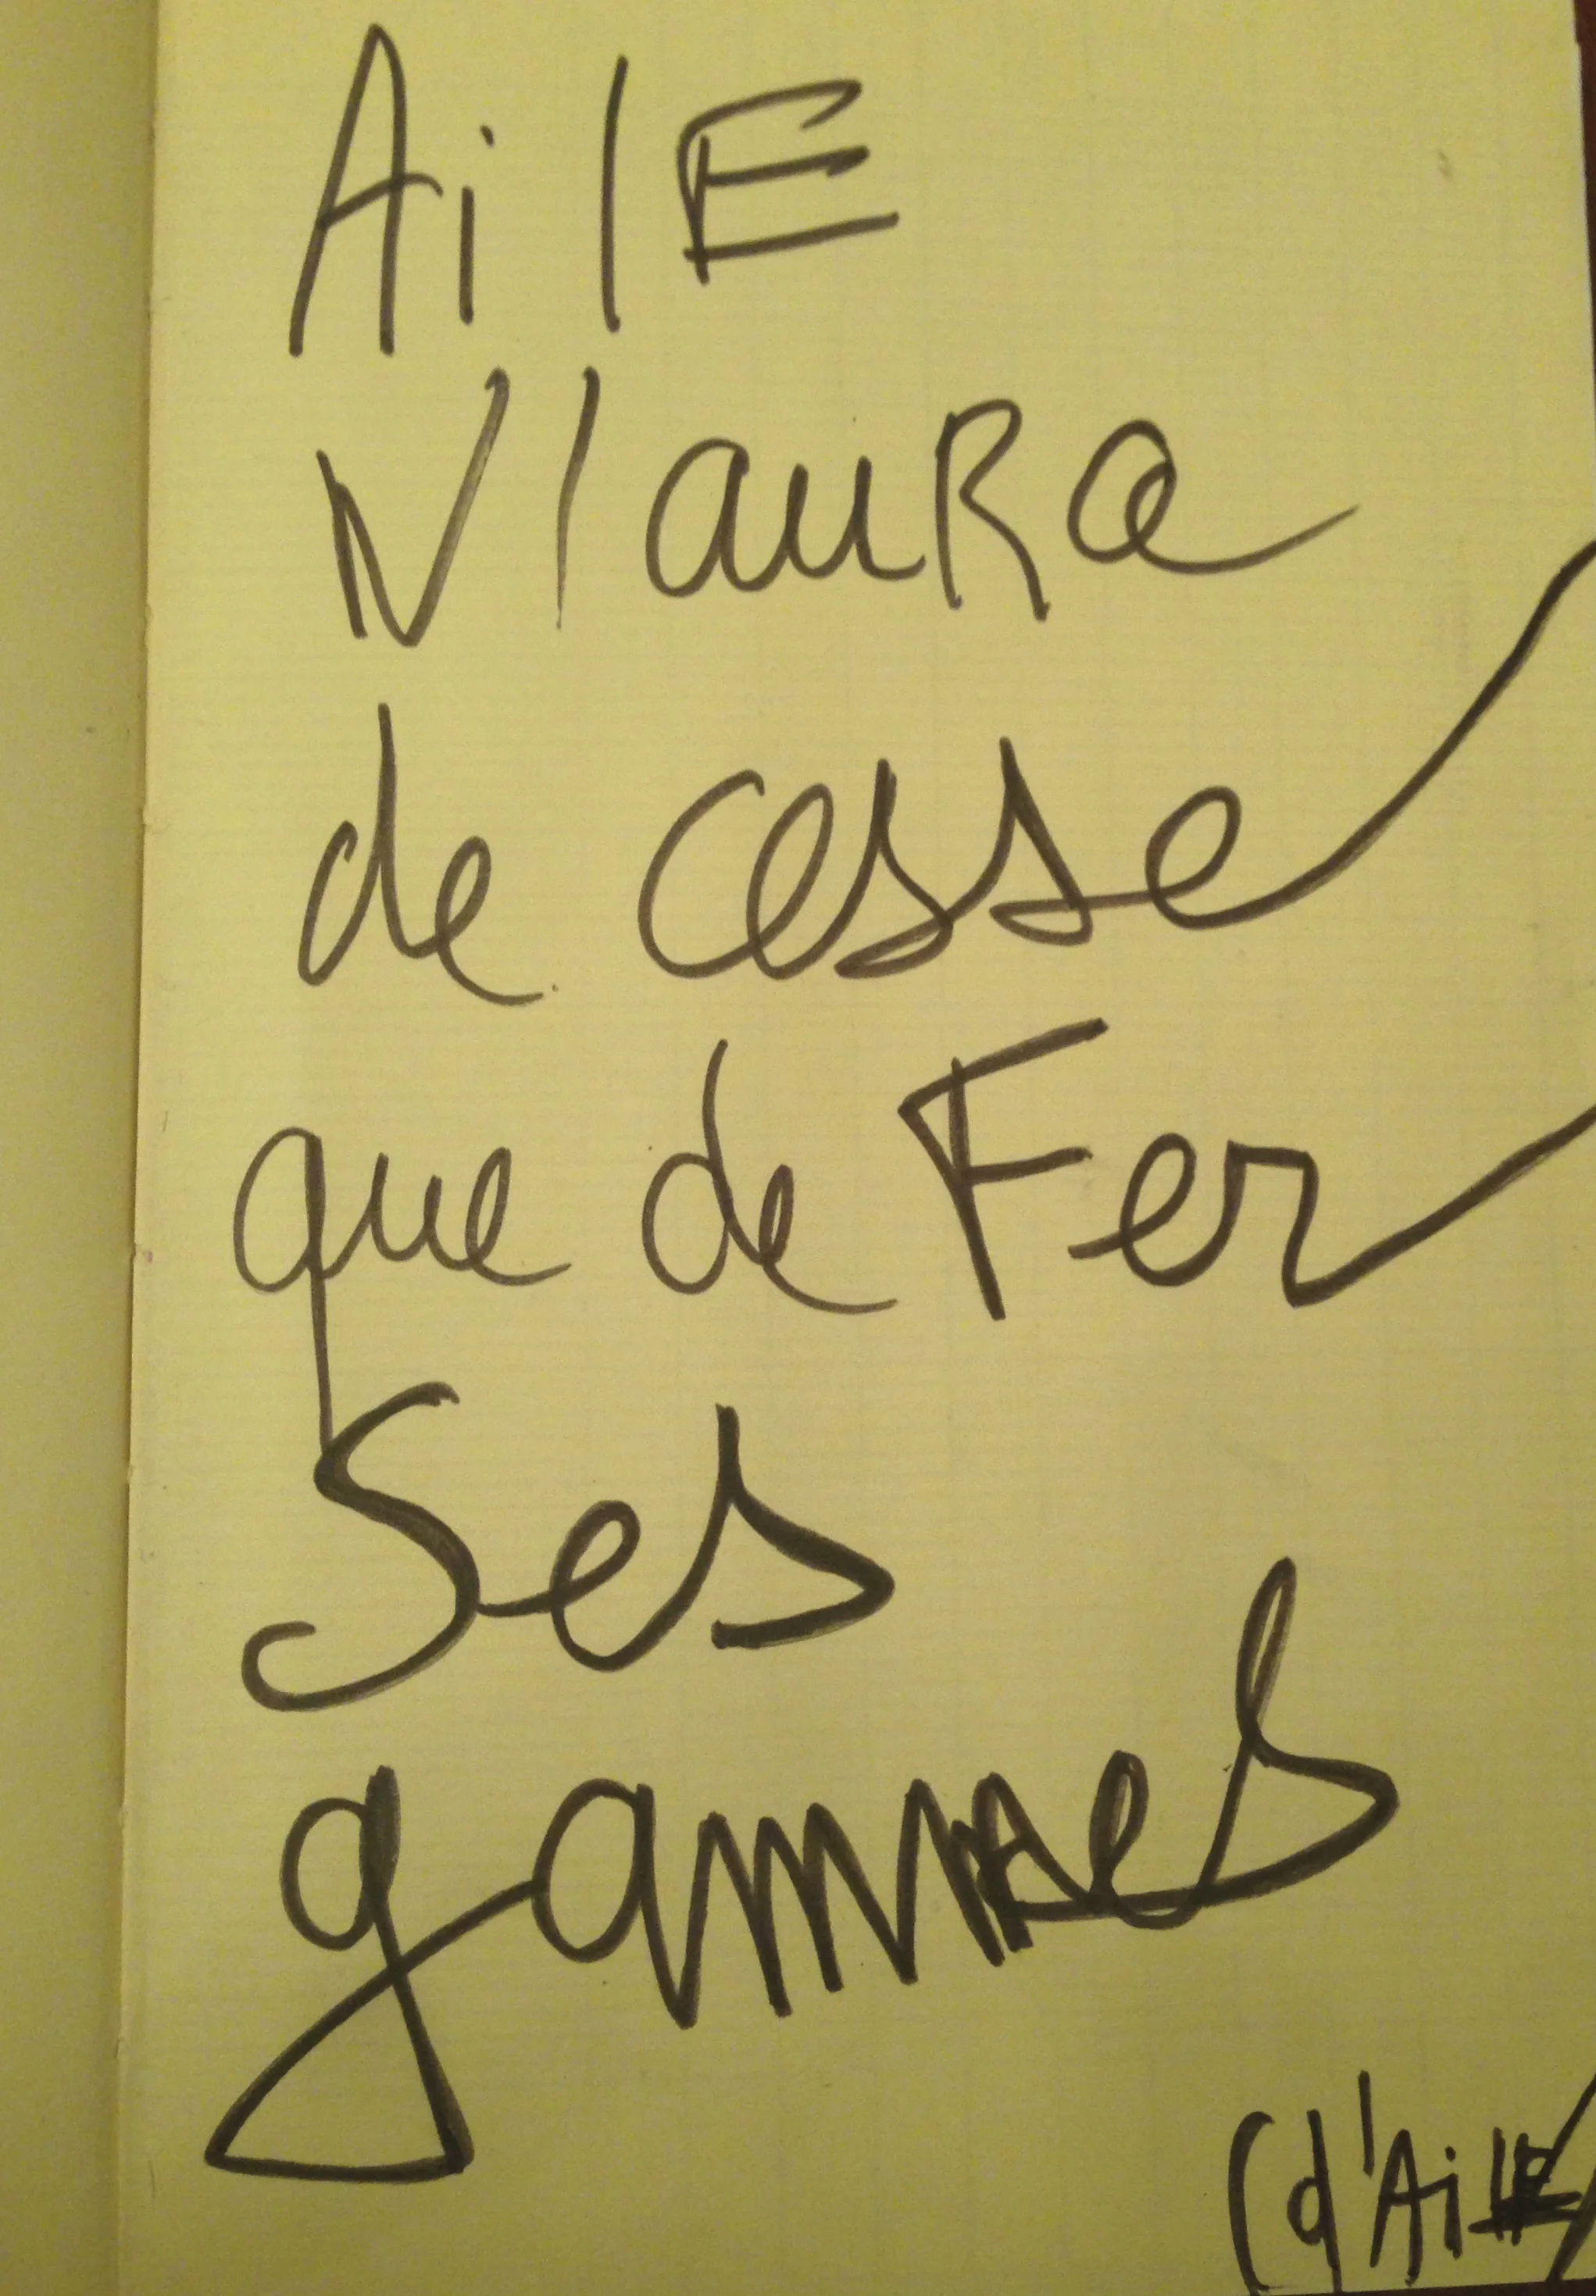 AilE
N'auRa
de cesse
que de Fer
Ses
gammes
(d'AilE)